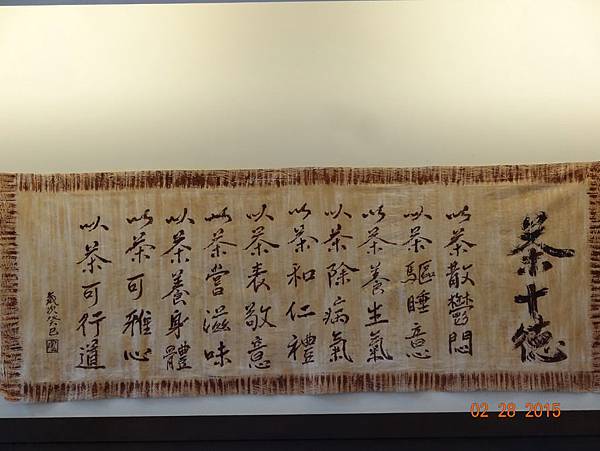 茶十德
以茶散鬱悶
以茶驅睡意
以茶養生氣
以茶除病氣
以茶和仁禮
以茶表敬意
以茶嘗滋味
以茶養身體
以茶可雅心
以茶可行道
歲次癸巳
02 28 2015